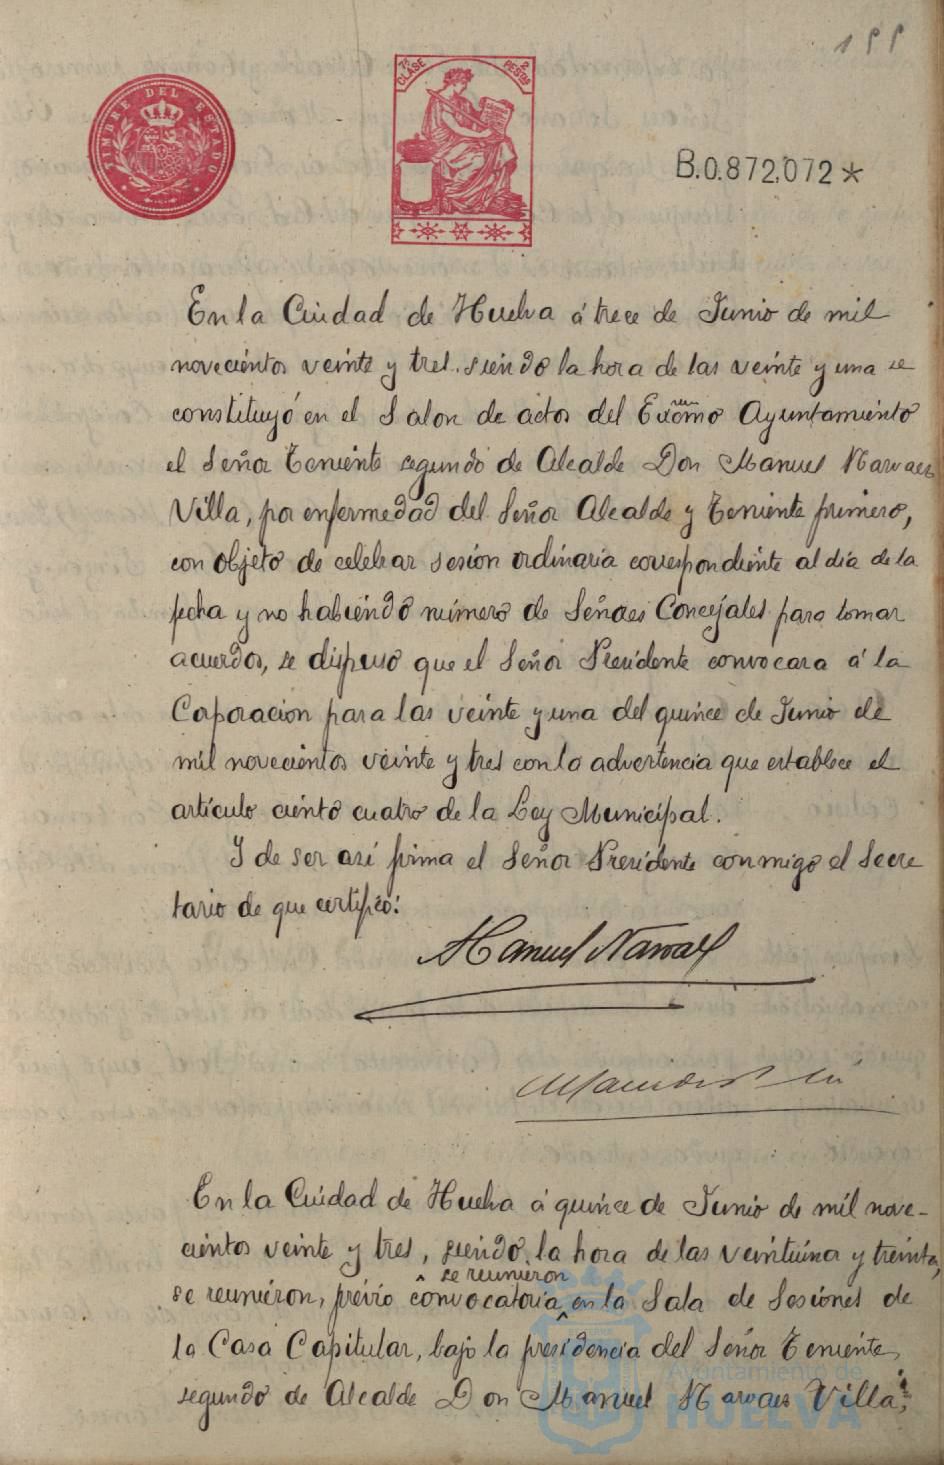 199
TIMBRE DEL ESTADO
7ª CLASE
2 PESTAS
B.0.872.072*
En la Ciudad de Huelva á trece de Junio de mil
novecientos veinte y tres. siendo la hora de las veinte y una se
constituyó en el Salon de actos del Excmo Ayuntamiento
el Señor Teniente segundo de Alcalde Don Manuel Narvaes
Villa, por enfermedad del Señor Alcalde y Teniente primero,
con objeto de celebrar sesion ordinaria correspondiente al día de la
fecha y no habiendo número de Señores Concejales para tomar
acuerdos, se dispuso que el Señor Presidente convocara á la
Corporacion para las veinte y una del quince de Junio de
mil novecientos veinte y tres con la advertencia que establece el
artículo ciento cuatro de la Ley Municipal.
Y de ser así firma el Señor Presidente conmigo el Secre
tario de que certifico:
Manuel Narvaes
En la Ciudad de Huelva á quince de Junio de mil nove-
cientos veinte y tres, siendo la hora de las veintiuna y treinta,
se reunieron
se reunieron, previo convocatoria en la Sala de Sesiones de
la Casa Capitular, bajo la presidencia del Señor Teniente
segundo de Alcalde Don Manuel Narvaes Villa,
Ayuntamiento de
HUELVA